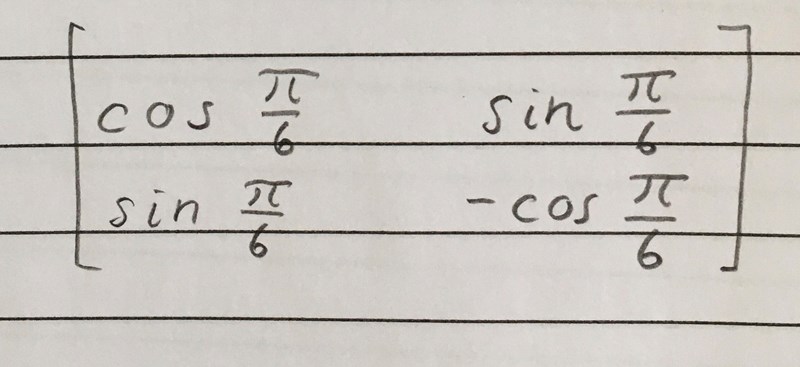 cos π/6 sin π/6
sin π/6 -cos π/6